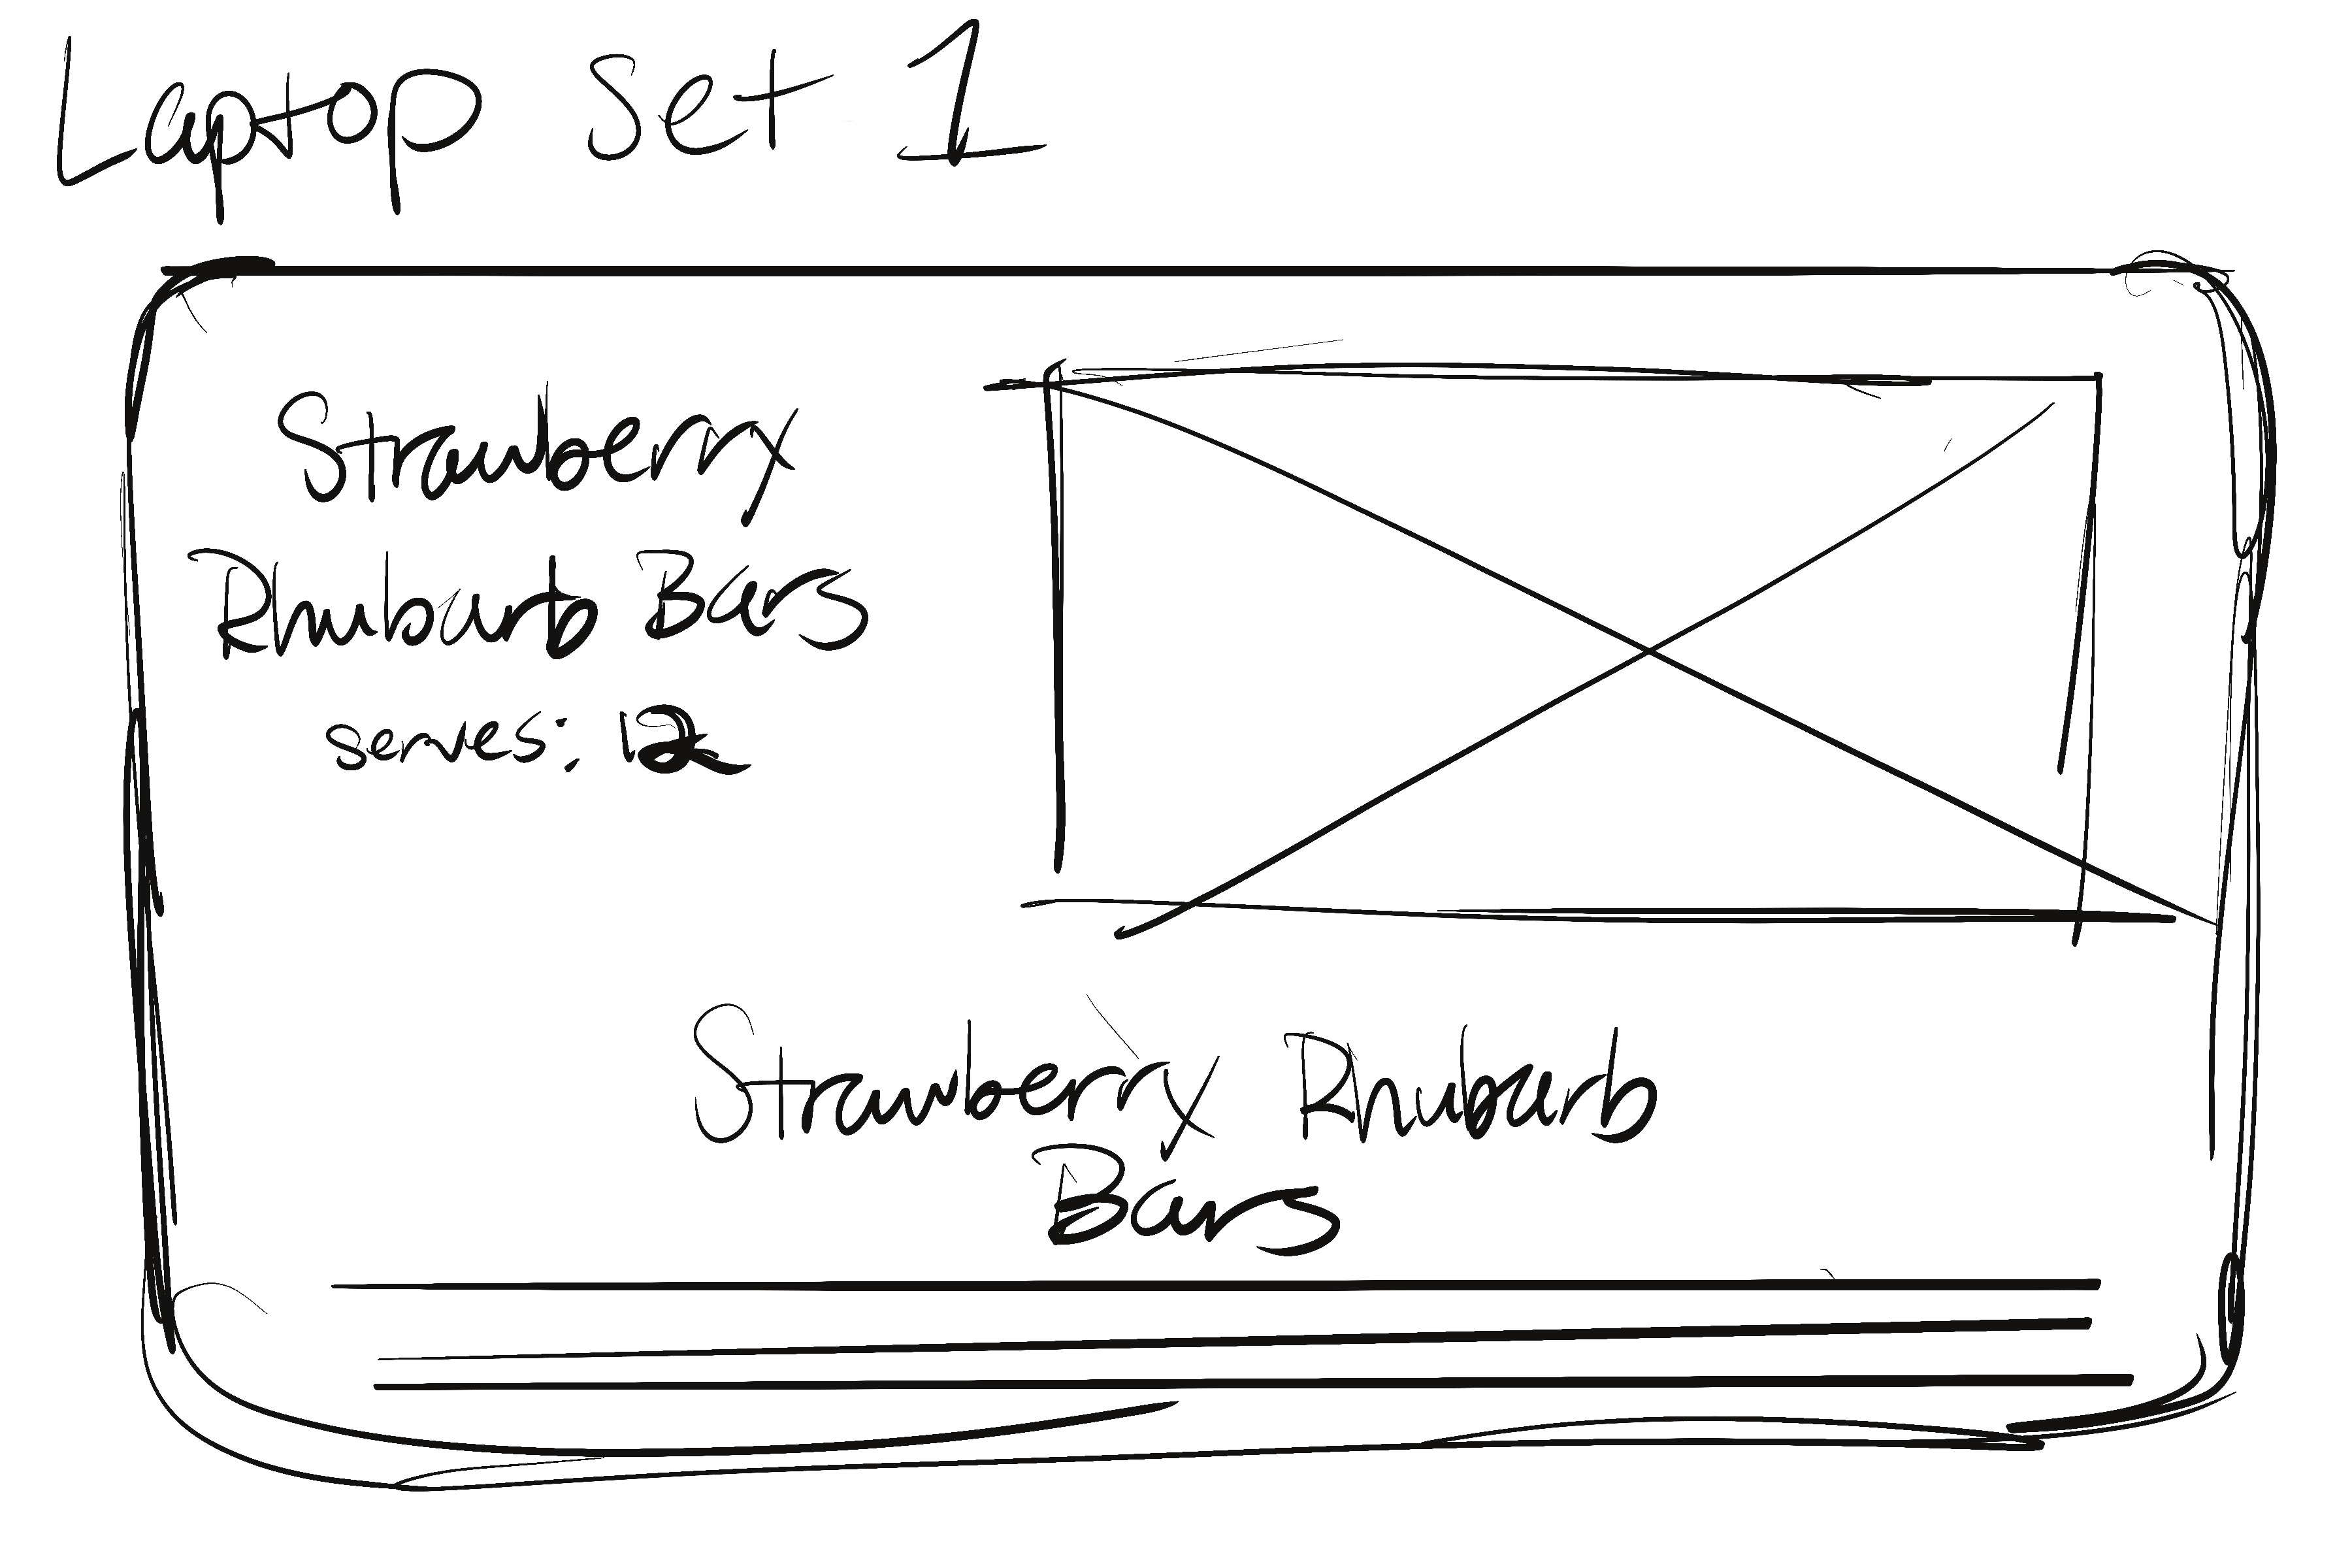 Laptop Set 1
Strawberry
Rhubarb Bars
serves: 12
Strawberry Rhubarb
Bars